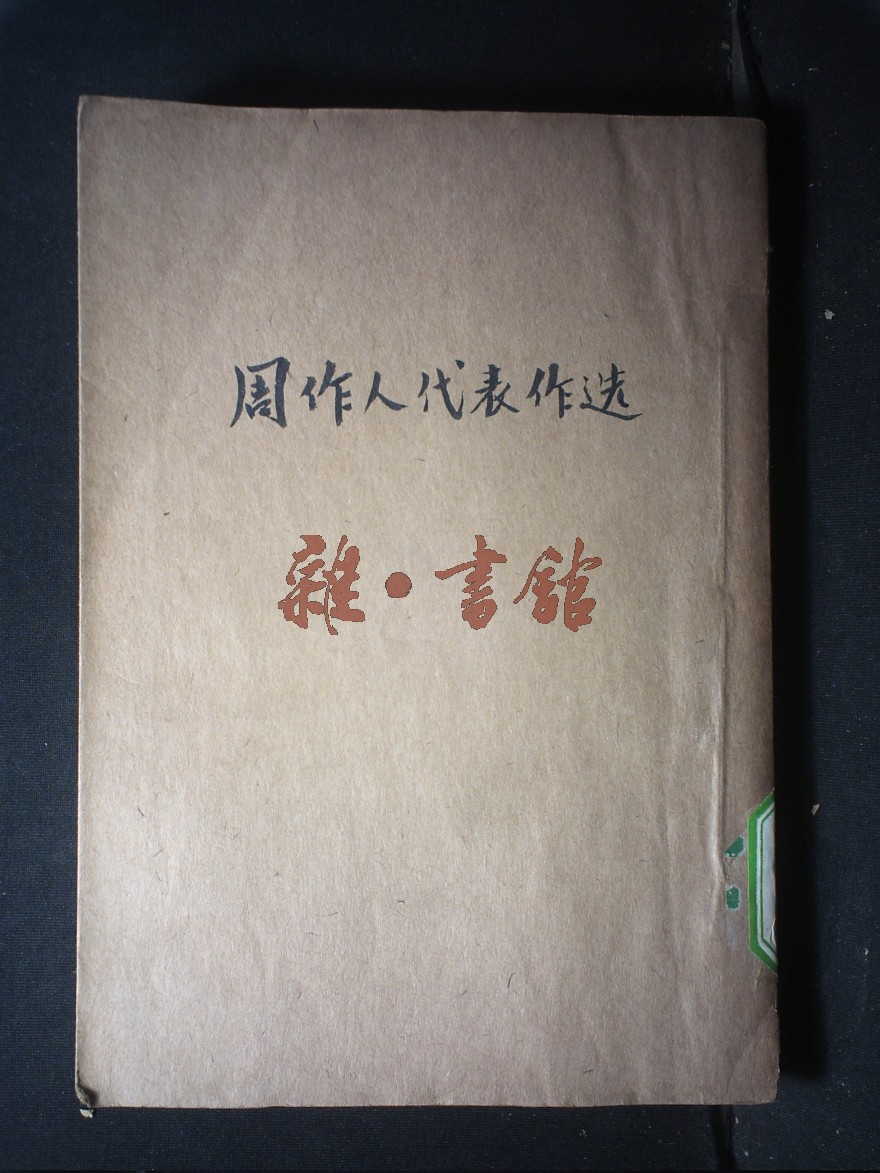 周作人代表作选
雜·書館